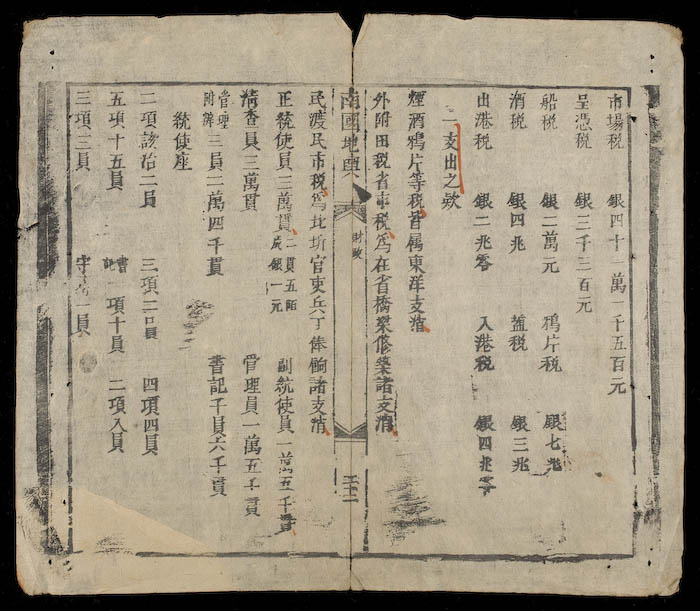 市場稅 銀四十一萬一千五百元
呈憑稅 銀三千二百元
船稅 銀二萬元 鴉片稅 銀七兆
酒稅 銀四兆 盐稅 銀三兆
出港稅 銀二兆零 入港稅 銀四兆零
一支出之欵
煙酒鴉片等稅皆属東洋支消
外附田稅省市稅爲在省橋梁修築諸支消
南國地輿 財政 二十二
民渡民市稅爲北圻官吏兵丁俸餉諸支消
正統使員三萬貫 二貫五陌成銀一元 副統使員一萬五千貫
清查員三萬貫 管理員一萬五千貫
管理附辦三員二萬四千貫 書記千員六千貫
統使座
二項該治二員 三項三員 四項四員
五項十五員 書記 一項十員 二項八員
三項三員 一員